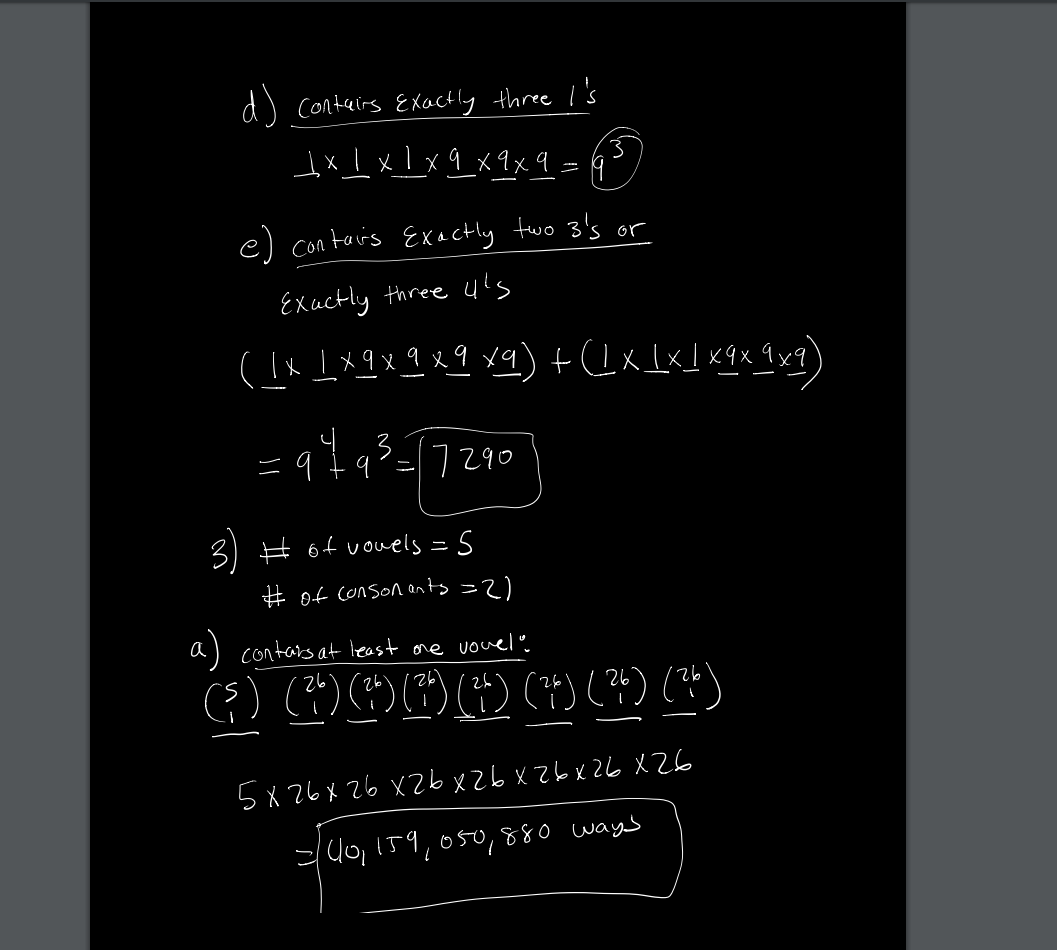 d) contains Exactly three 1's
1 x 1 x 1 x 9 x 9 x 9 = 9^3
e) contais Exactly two 3's or
Exactly three 4's
(1 x 1 x 9 x 9 x 9 x 9) + (1 x 1 x 1 x 9 x 9 x 9)
= 9^4 + 9^3 = 7290
3) # of vowels = 5
# of consonants = 21
a) contais at least one vowel:
(5 1) (26 1) (26 1) (26 1) (26 1) (26 1) (26 1) (26 1)
5 x 26 x 26 x 26 x 26 x 26 x 26 x 26
= 40,159,050,880 ways